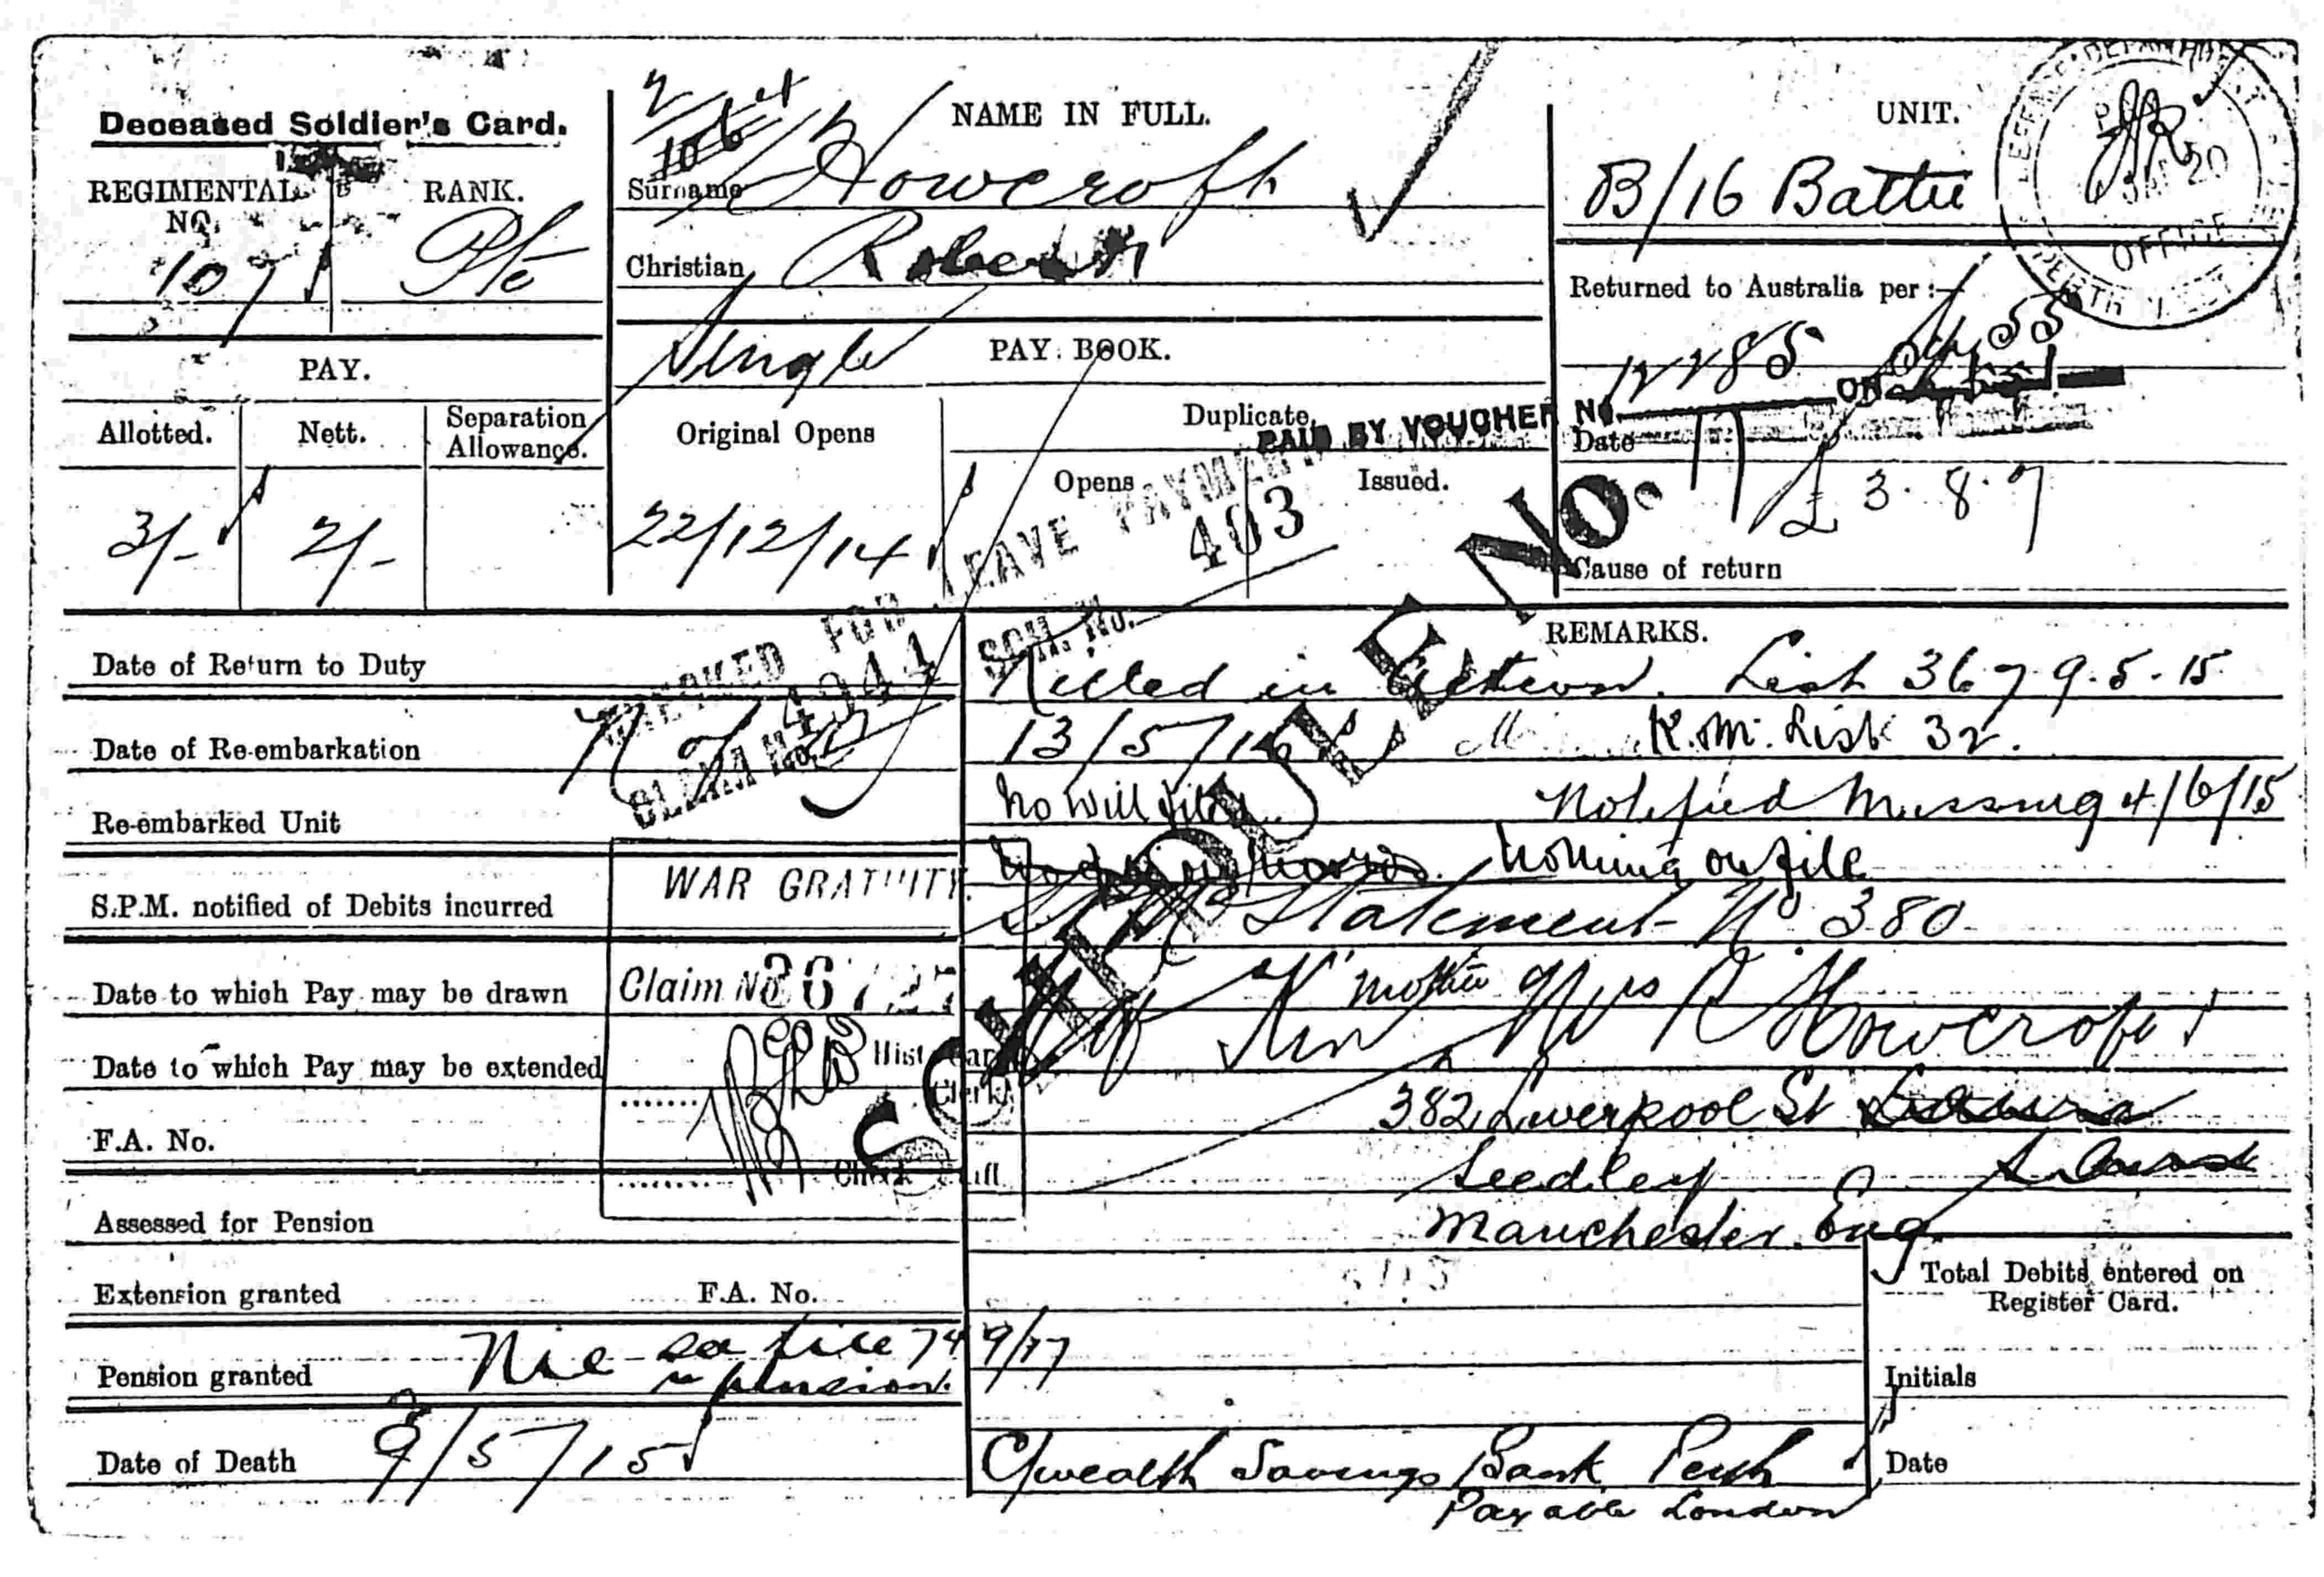 Deceased Soldier's Card.
REGIMENTAL NO.
107
RANK.
Pte
NAME IN FULL.
Surname Howcroft
Christian Robert
Single
UNIT.
B/16 Battn
DEFENCE DEPARTMENT
OFFICE
PERTH
Returned to Australia per :—
PAY.
Allotted.
Nett.
Separation Allowance.
3/-
2/-
PAY BOOK.
Original Opens
22/12/14
Duplicate
Opens
Issued.
PAID BY VOUCHER No.
ON
Date
£ 3. 8. 7
Cause of return
CHECKED FOR LEAVE PAYMENT
403
CLAIM No. 4944
SCH. No.
SCHEDULE No. 17
Date of Return to Duty
Date of Re-embarkation
Re-embarked Unit
S.P.M. notified of Debits incurred
Date to which Pay may be drawn
Date to which Pay may be extended
F.A. No.
Assessed for Pension
Extension granted F.A. No.
Pension granted Nil
Date of Death 9/5/15
WAR GRATUITY.
Claim No
Clerk
REMARKS.
Killed in Action. List 367 9.5.15
13/5/16 K.M. List 32.
No will Notified Missing 4/6/15
Nothing on file
Statement No 380
Kin mother Mrs R Howcroft
382 Liverpool St
Seedley
Manchester. Eng.
9/17
C/wealth Savings Bank Perth
Payable London
Total Debits entered on Register Card.
Initials
Date